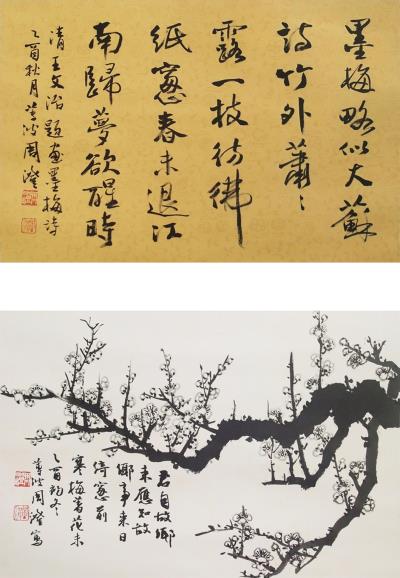 墨梅略似大蘇
詩竹外蕭〻
露一枝彷彿
紙窗春未退江
南歸夢欲醒時
清王文治題畫墨梅詩
乙酉秋月蓴波周澄
君自故鄉
來應知故
鄉事來日
綺窗前
寒梅著花未
乙酉初冬
蓴波周澄寫